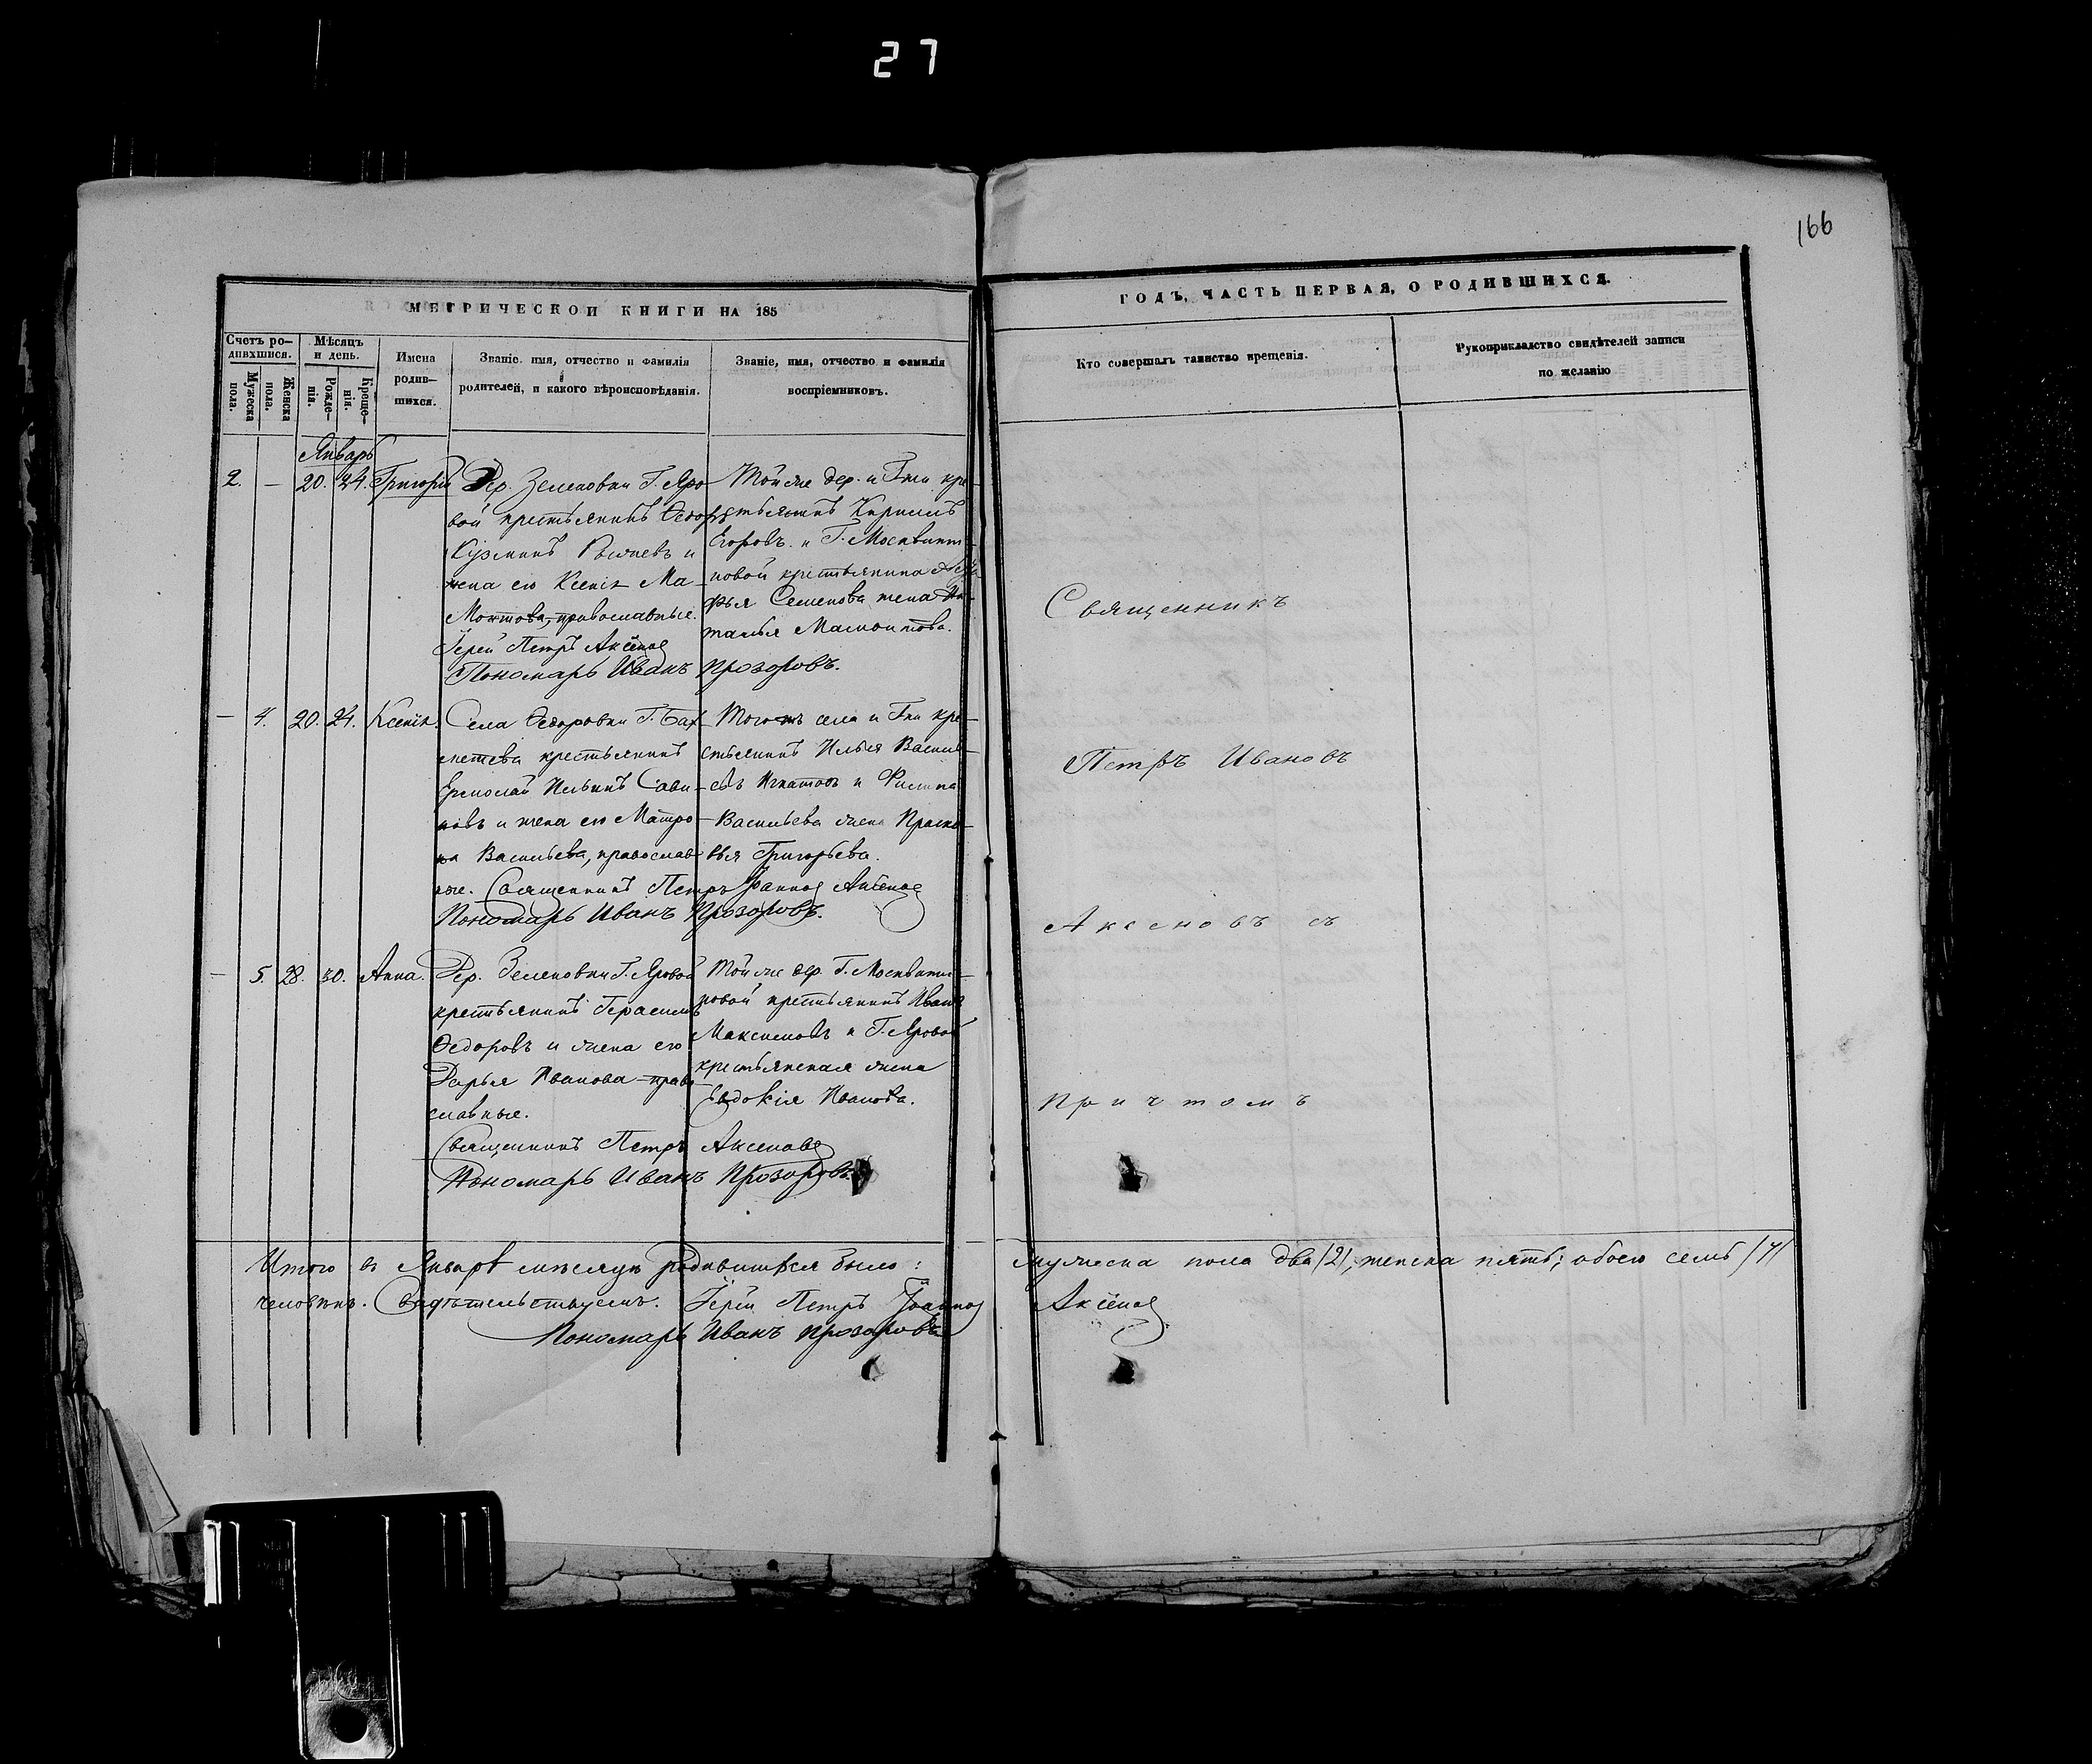 27
166
МЕТРИЧЕСКОЙ КНИГИ НА 185
ГОДЪ, ЧАСТЬ ПЕРВАЯ, О РОДИВШИХСЯ.
Счетъ ро-
дившихся.
Мужеска
пола.
Женска
пола.
Мѣсяцъ
и день.
Рожде-
нія.
Креще-
нія.
Имена
родив-
шихся.
Званіе, имя, отчество и фамилія
родителей, и какого вѣроисповѣданія.
Званіе, имя, отчество и фамилія
воспріемниковъ.
Кто совершалъ таинство крещенія.
Рукоприкладство свидѣтелей записи
по желанію
Январь
2. — 20. 24. Григорій
Дер. Зеленовки Г. Яро-
вой крестьянинъ Ѳедоръ
Кузминъ и
жена его Ксенія Ма-
монтова, православные.
Іерей Петръ Аксеновъ
Пономарь Иванъ Прозоровъ.
Той же дер. и Гжи кре-
стьянинъ Кирилъ
Егоровъ и Г. Москвити-
новой крестьянина
Семенова жена На-
талья Мамонтова.
— 4. 20. 24. Ксенія.
Села Ѳедоровки Г. Бах-
метева крестьянинъ
Ермолай Ильинъ Сави-
новъ и жена его Матро-
на Васильева, православ-
ные. Священникъ Петръ Іоанновъ Аксеновъ
Пономарь Иванъ Прозоровъ.
Того жъ села и Гна кре-
стьянинъ Илья Василь-
евъ Игнатовъ и Филипа
Васильева жена Праско-
вья Григорьева.
— 5. 28. 30. Анна.
Дер. Зеленовки Г. Яровой
крестьянинъ Герасимъ
Ѳедоровъ и жена его
Дарья Иванова—право-
славные.
Священникъ Петръ Аксеновъ
Пономарь Иванъ Прозоровъ.
Той же дер. Г. Москвити-
новой крестьянинъ Иванъ
Максимовъ и Г. Яровой
крестьянская жена
Евдокія Иванова.
Священникъ
Петръ Ивановъ
Аксеновъ съ
причтомъ
Итого въ Январѣ мѣсяцѣ родившихся было: мужеска пола два /2/, женска пять; обоего семь /7/
человѣкъ. Свидѣтельствуемъ. Іерей Петръ Іоанновъ Аксеновъ
Пономарь Иванъ Прозоровъ